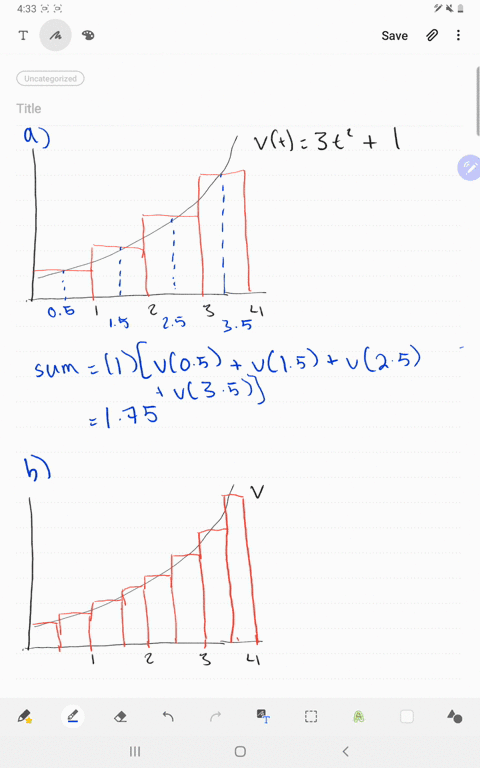 4:33
T
Save
Uncategorized
Title
a)
v(t) = 3t² + 1
1 2 3 4
0.5 1.5 2.5 3.5
sum = (1)[v(0.5) + v(1.5) + v(2.5)
+ v(3.5)]
= 1.75
b)
v
1 2 3 4